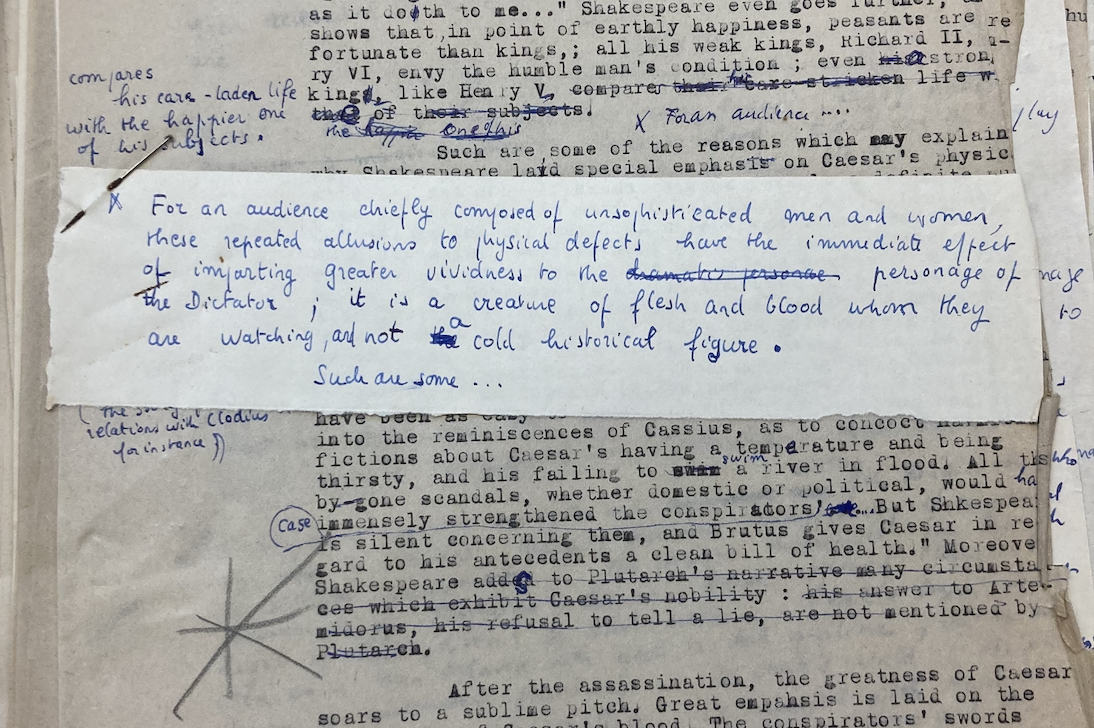 as it doth to me..." Shakespeare even goes further,
shows that,in point of earthly happiness, peasants are
fortunate than kings,; all his weak kings, Richard II,
ry VI, envy the humble man's condition ; even his a stron,
kings, like Henry V, compare their his care-stricken life w
that of their subjects.
the happie one of his
compares
his care-laden life
with the happier one
of his subjects.
X For an audience ....
play
Such are some of the reasons which may explain
why Shakespeare laid special emphasis on Caesar's physic
X For an audience chiefly composed of unsophisticated men and women,
these repeated allusions to physical defects have the immediate effect
of imparting greater vividness to the dramatis personae personage of
the Dictator ; it is a creature of flesh and blood whom they
are watching, and not the a cold historical figure.
Such are some ...
to
relations with Clodius
for instance)
have been as easy to
into the reminiscences of Cassius, as to concoct
fictions about Caesar's having a temperature and being
thirsty, and his failing to swim swim a river in flood. All
by-gone scandals, whether domestic or political, would ha
Case immensely strengthened the conspirators' ...But Shkespea
is silent concerning them, and Brutus gives Caesar in re
gard to his antecedents a clean bill of health." Moreove
Shakespeare added to Plutarch's narrative many circumsta
ces which exhibit Caesar's nobility : his answer to Arte-
midorus, his refusal to tell a lie, are not mentioned by
Plutarch.
After the assassination, the greatness of Caesar
soars to a sublime pitch. Great empahsis is laid on the
Caesar's blood. The conspirators' swords